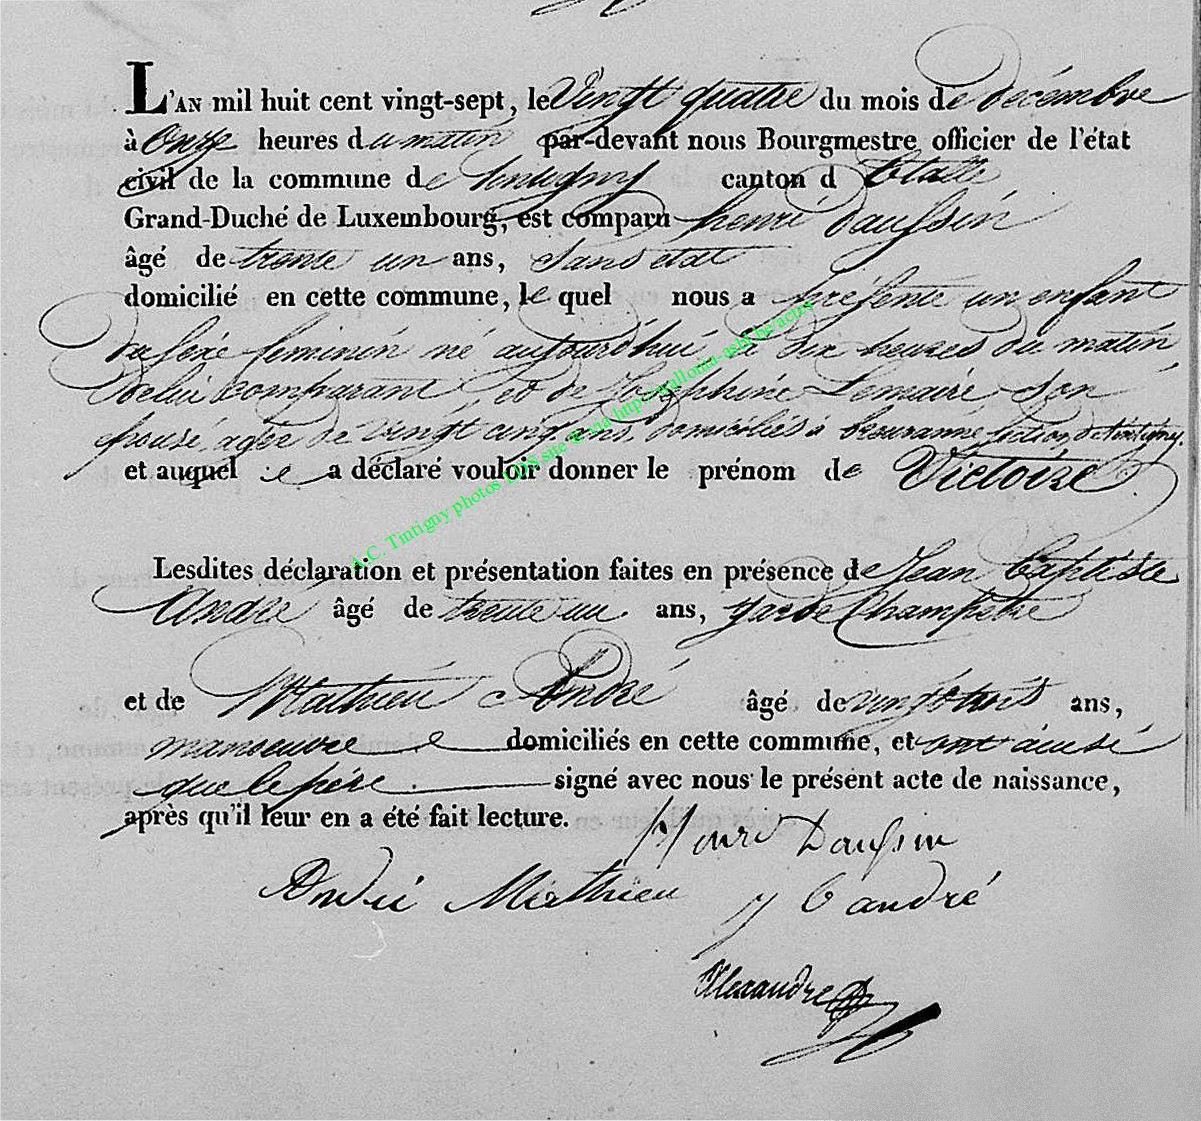 L'AN mil huit cent vingt-sept, le Vingt quatre du mois de décembre
à Onze heures du matin par-devant nous Bourgmestre officier de l'état
civil de la commune de tintigny canton d' Etalle
Grand-Duché de Luxembourg, est comparu henri daussin
âgé de trente un ans, sans etat
domicilié en cette commune, le quel nous a presenté un enfant
du sexe feminin né aujourdhui à dix heures du matin
de lui comparant et de Josephine Lemaire son
épouse agée de vingt cinq ans domiciliés à section de tintigny.
et auquel il a déclaré vouloir donner le prénom de Victoire
Lesdites déclaration et présentation faites en présence de Jean Baptiste
André âgé de trente un ans, garde Champetre
et de Mathieu André âgé de vingt trois ans,
manoeuvre domiciliés en cette commune, et ont ainsi
que le père signé avec nous le présent acte de naissance,
après qu'il leur en a été fait lecture.
Henri Daussin
André Mathieu J B andré
Alexandre
A.C. Tintigny photos LDS site Texia http://wallonia-asbl.be/actes